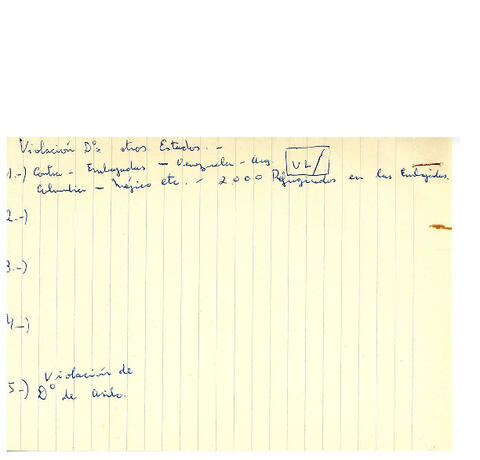 Violación Dºs otros Estados.-
1.-) Contra - Embajadas - Venezuela - Arg VL/
Columbia - Méjico etc. - 2.000 Refugiados en las Embajadas.
2.-)
3.-)
4.-)
5.-) Violación de
Dº de asilo.